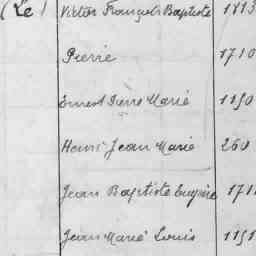 (Le) Victor François Baptiste 1713
Pierre 1710
Ernest Pierre Marie 1150
Henri Jean Marie 260
Jean Baptiste Eugène 171
Jean Marie Louis 1151